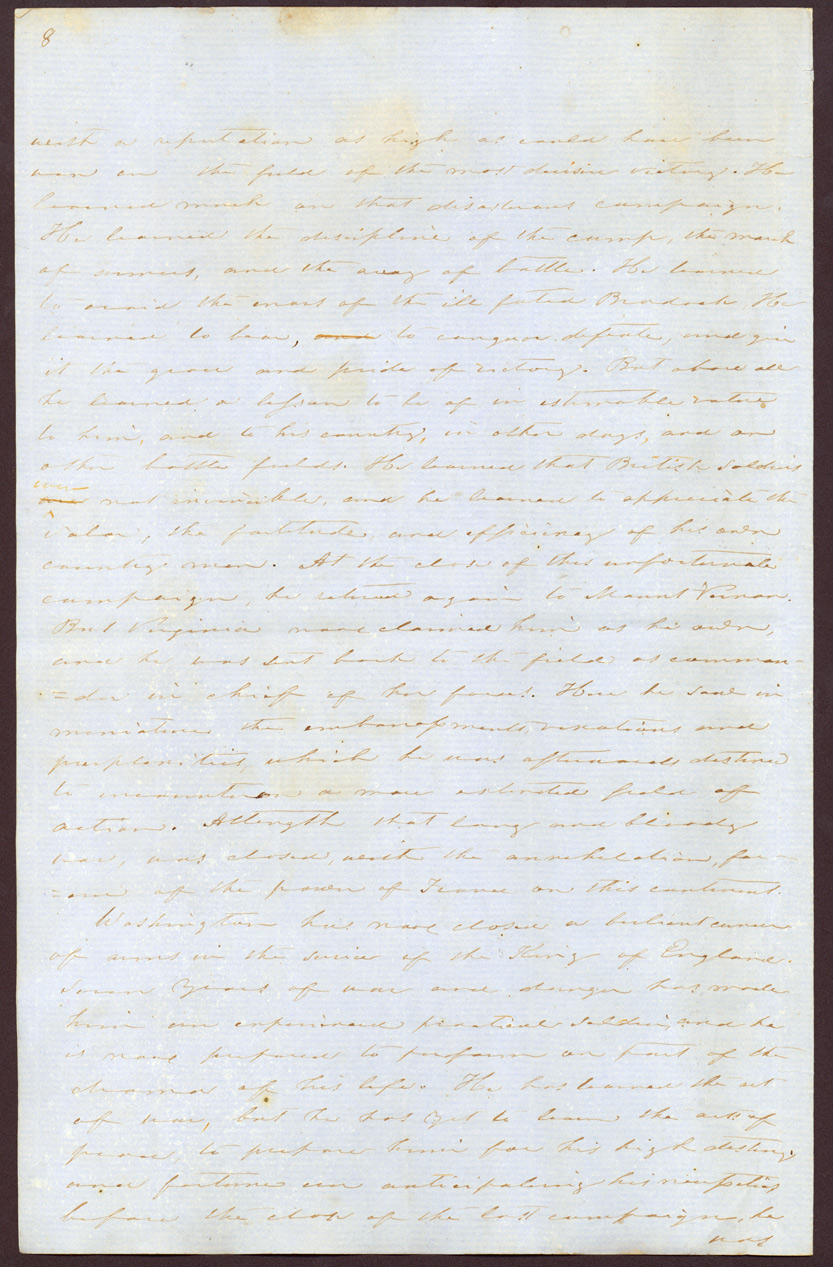 8
with a reputation as high as could have been
won on the field of the most decisive victory. He
learned much on that disastrous campaign.
He learned the discipline of the camp, the march
of armies, and the aray of battle. He learned
to avoid the errors of the ill fated Bradock. He
learned to bear, and to conquer defeate, and give
it the grace and pride of victory. But above all
he learned a lesson to be of in estimable value
to him, and to his country, in other days, and on
other battle fields. He learned that British soldiers
were
are not invincible, and he learned to appreciate the
valor, the fortitude and efficiency of his own
country men. At the close of this unfortunate
campaign, he retired again to Mount Vernon.
But Virginia now claimed him as her own,
and he was sent back to the field as comman=
=der in chief of her forces. Here he saw in
miniature the embarassments, vexations and
perplexities, which he was afterwards destined
to encounter on a more extended field of
action. At length that long and bloody
war, was closed, with the annihelation, for=
=ever of the power of France on this continent.
Washington has now closed a briliant career
of arms in the service of the King of England.
Seven years of war and danger has made
him an experienced practical soldier, and he
is now prepared to perform on part of the
drama of his life. He has learned the art
of war, but he has yet to learn the arts of
peace, to prepare him for his high destiny
and fortune in anticipating his nuptials
before the close of the last campaign, he
was